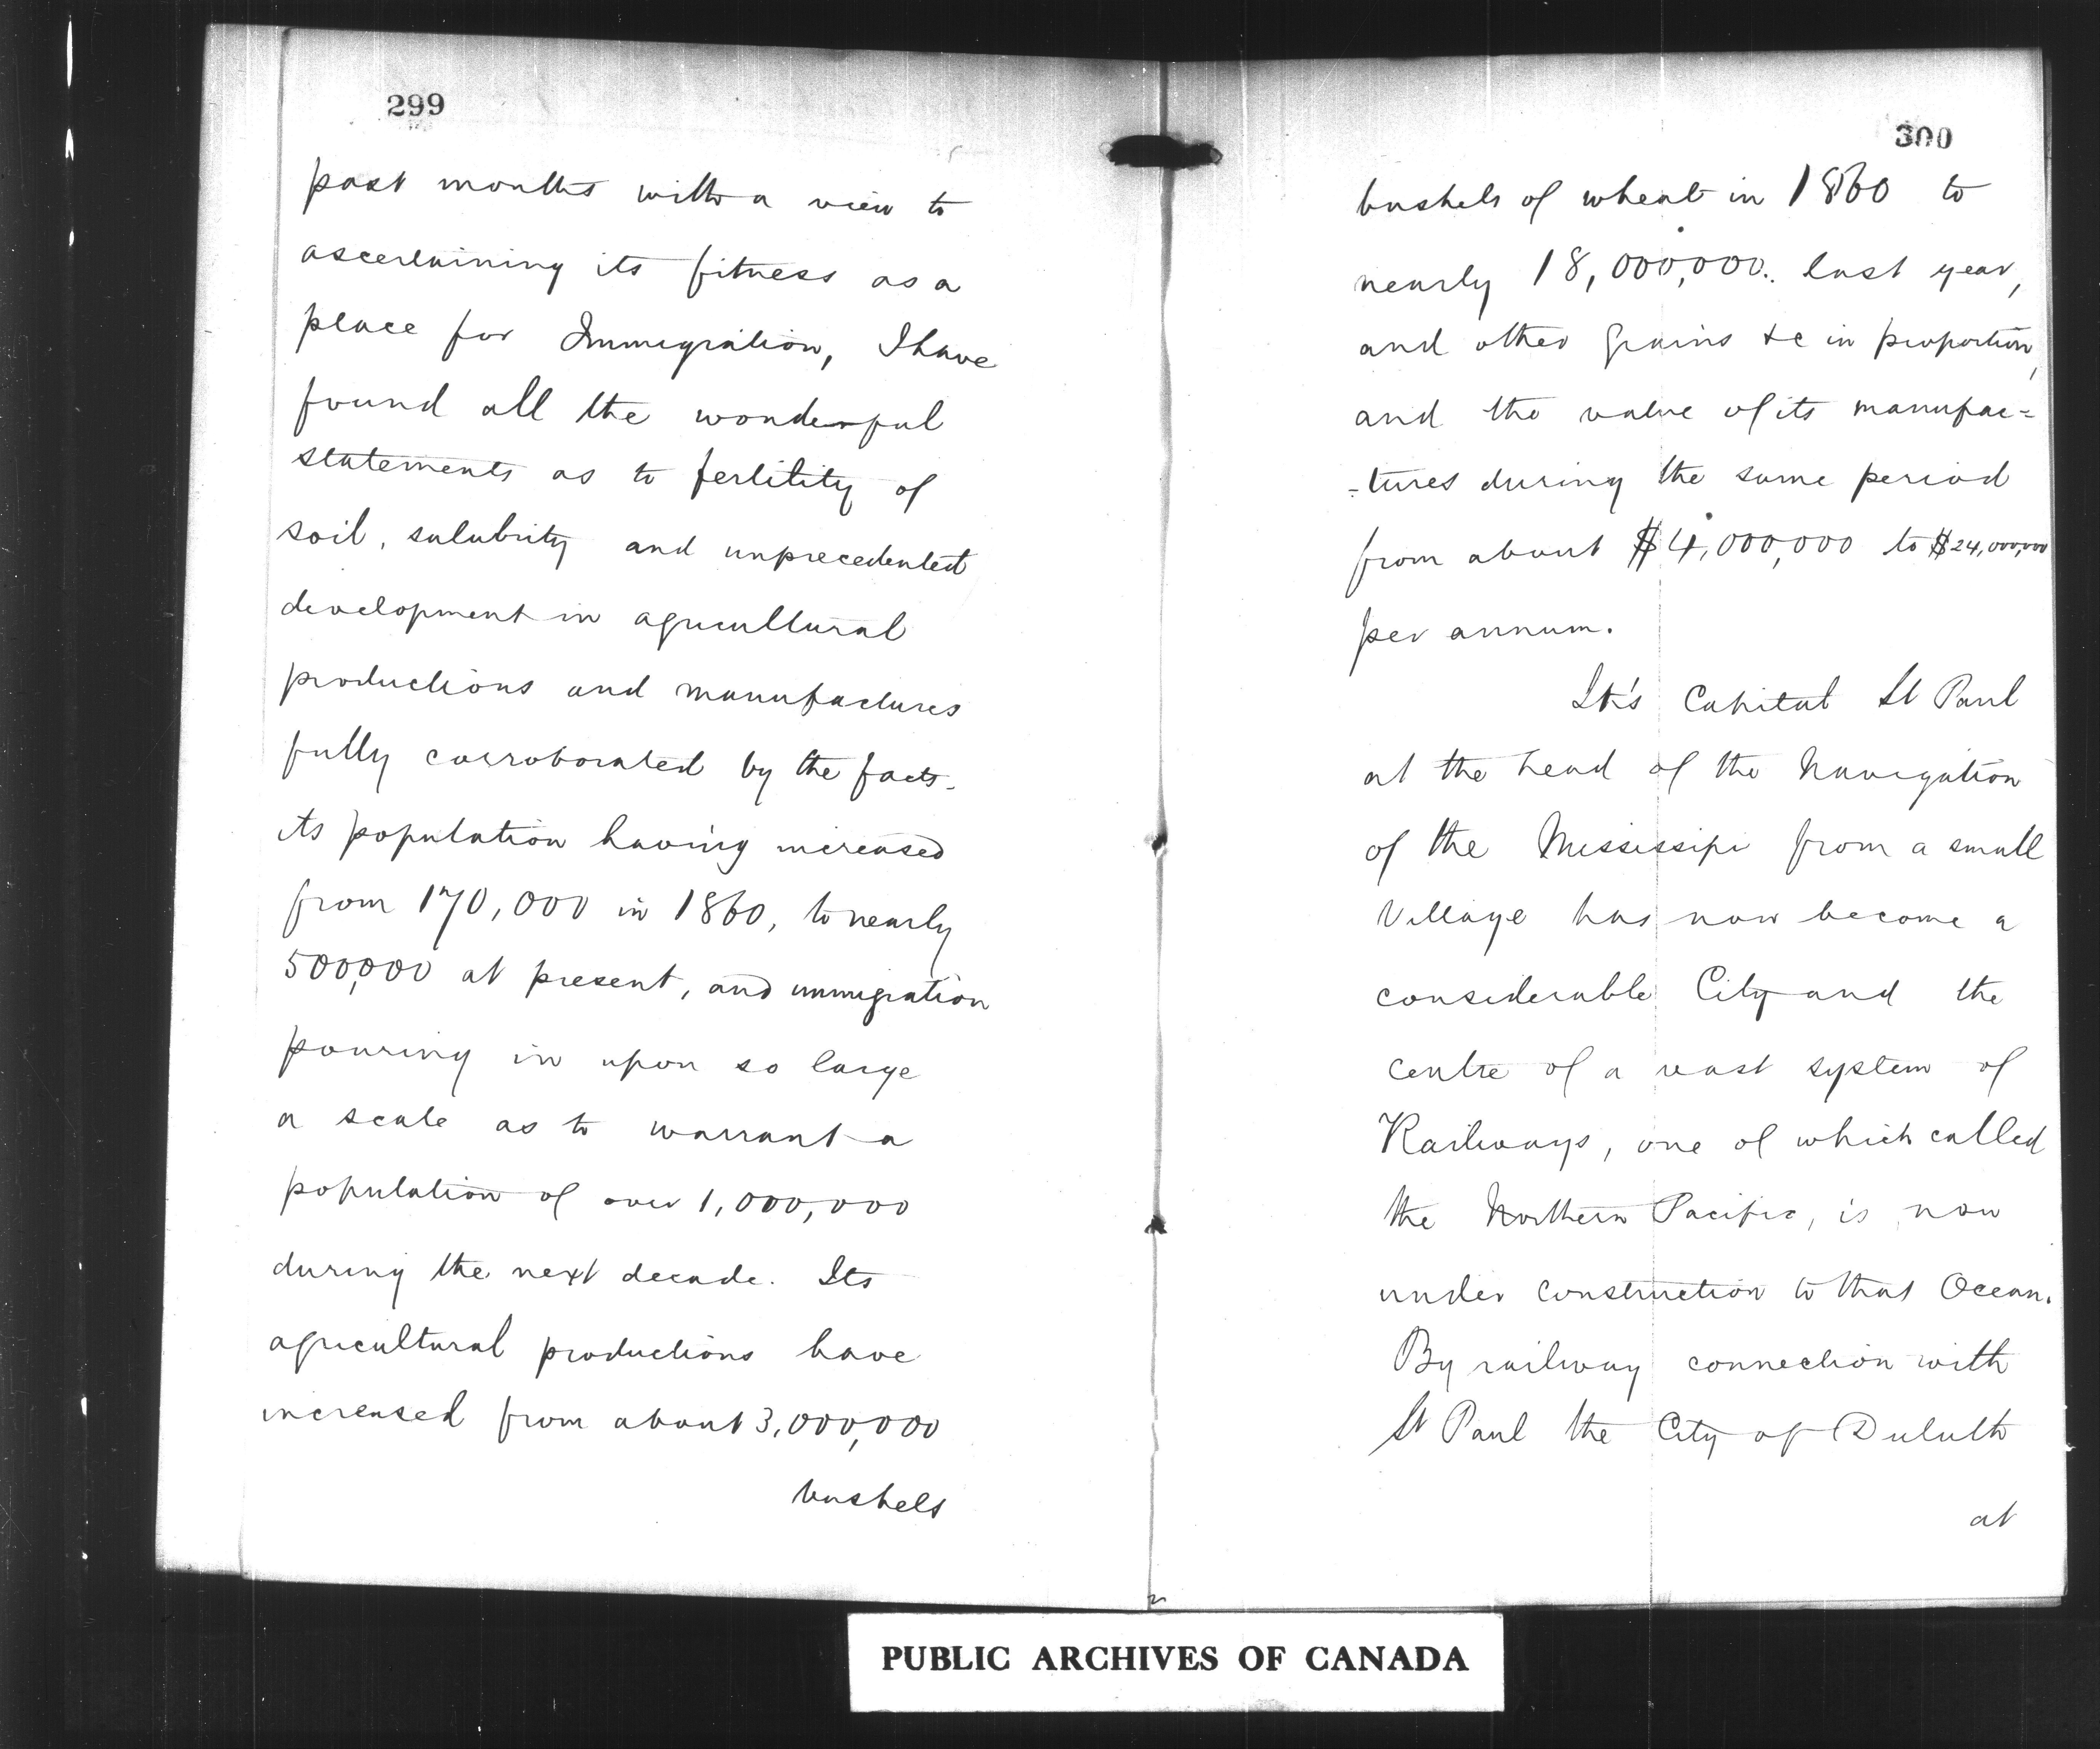 299
past months with a view to
ascertaining its fitness as a
place for Immigration, I have
found all the wonderful
statements as to fertility of
soil, salubrity and unprecedented
development in agricultural
productions and manufactures
fully corroborated by the facts.
its population having increased
from 170,000 in 1860, to nearly
500,000 at present, and immigration
pouring in upon so large
a scale as to warrant a
population of over 1,000,000
during the next decade. Its
agricultural productions have
increased from about 3,000,000
bushels
300
bushels of wheat in 1860 to
nearly 18,000,000. last year,
and other grains &c in proportion,
and the value of its manufac=
=tures during the same period
from about $4,000,000 to $24,000,000
per annum.
It's Capital St Paul
at the head of the Navigation
of the Mississipi from a small
Village has now become a
considerable City and the
centre of a vast system of
Railways, one of which called
the Northern Pacific, is now
under construction to that Ocean.
By railway connection with
St Paul the City of Duluth
at
PUBLIC ARCHIVES OF CANADA